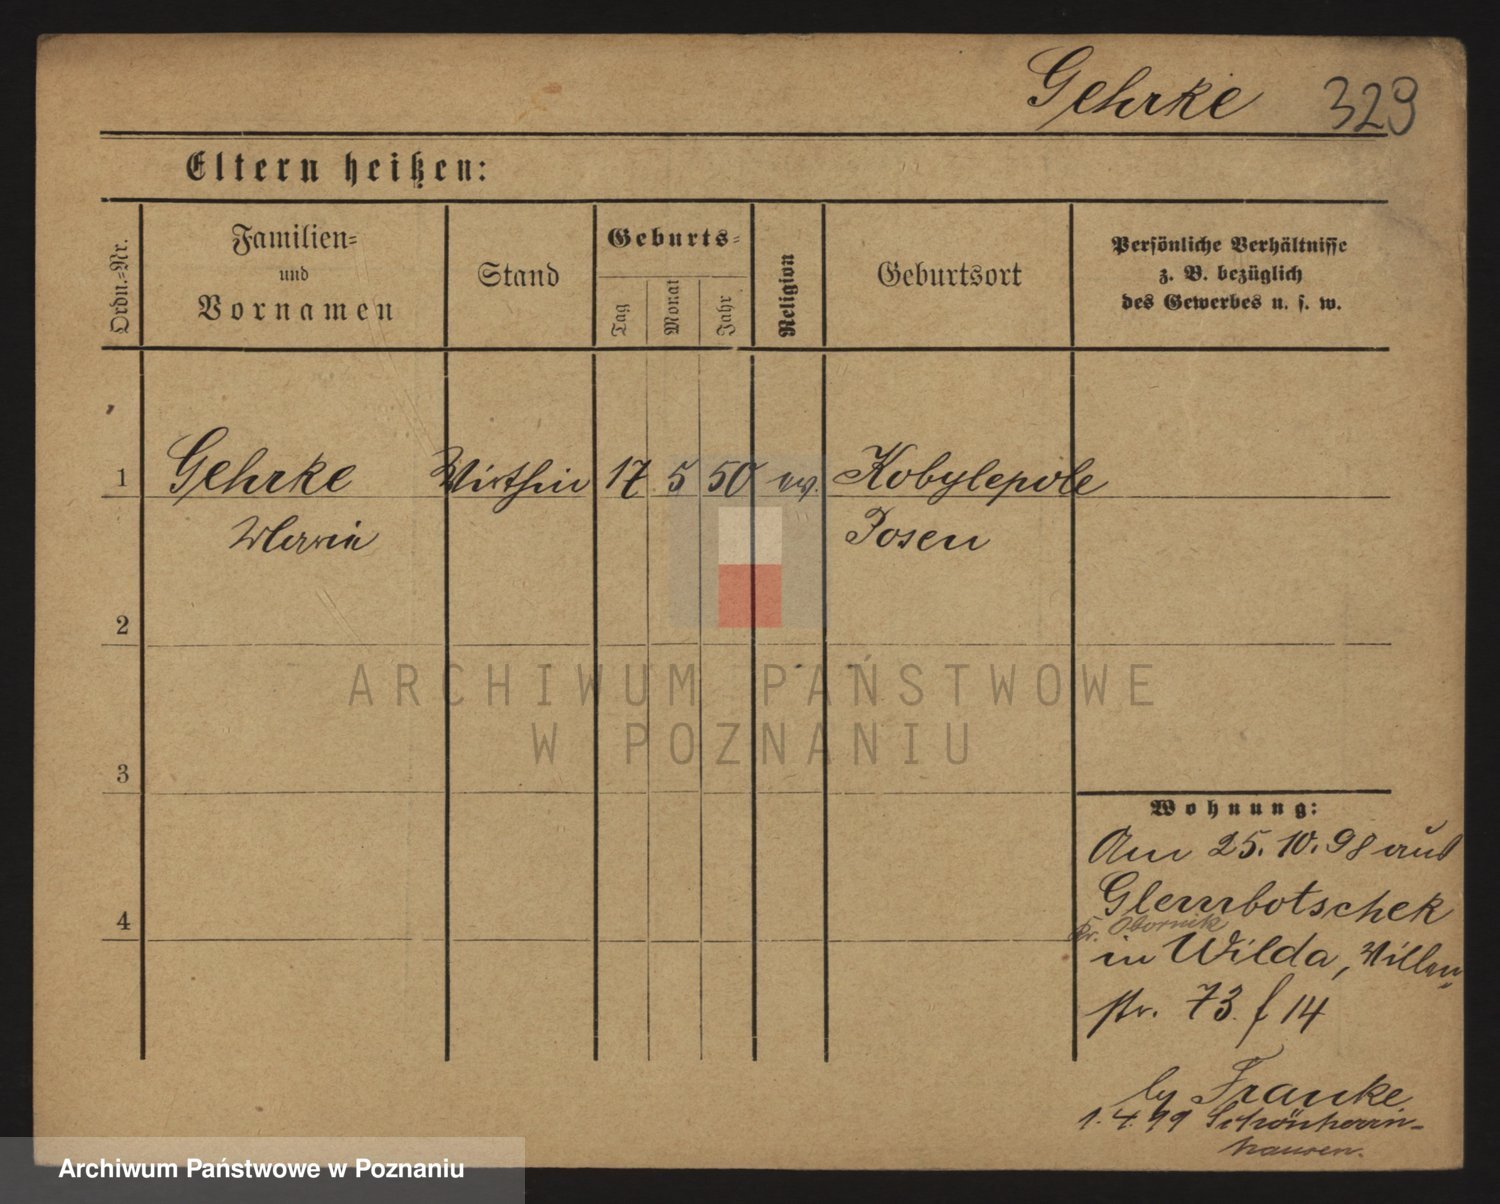 Gehrke 329
Eltern heißen:
Ordn.-Nr.
Familien-
und
Vornamen
Stand
Geburts-
Tag
Monat
Jahr
Religion
Geburtsort
Persönliche Verhältnisse
z. B. bezüglich
des Gewerbes u. s. w.
1 Gehrke Wirthin 17 5 50 ev. Kobylepole
Maria Posen
2
ARCHIWUM PAŃSTWOWE
W POZNANIU
3
Wohnung:
Am 25. 10. 98 aus
Glembotschek
4
Kr. Obornik
in Wilda, Villen-
str. 73. f 14
by Franke
1. 4. 99 Schönherrn-
hausen.
Archiwum Państwowe w Poznaniu